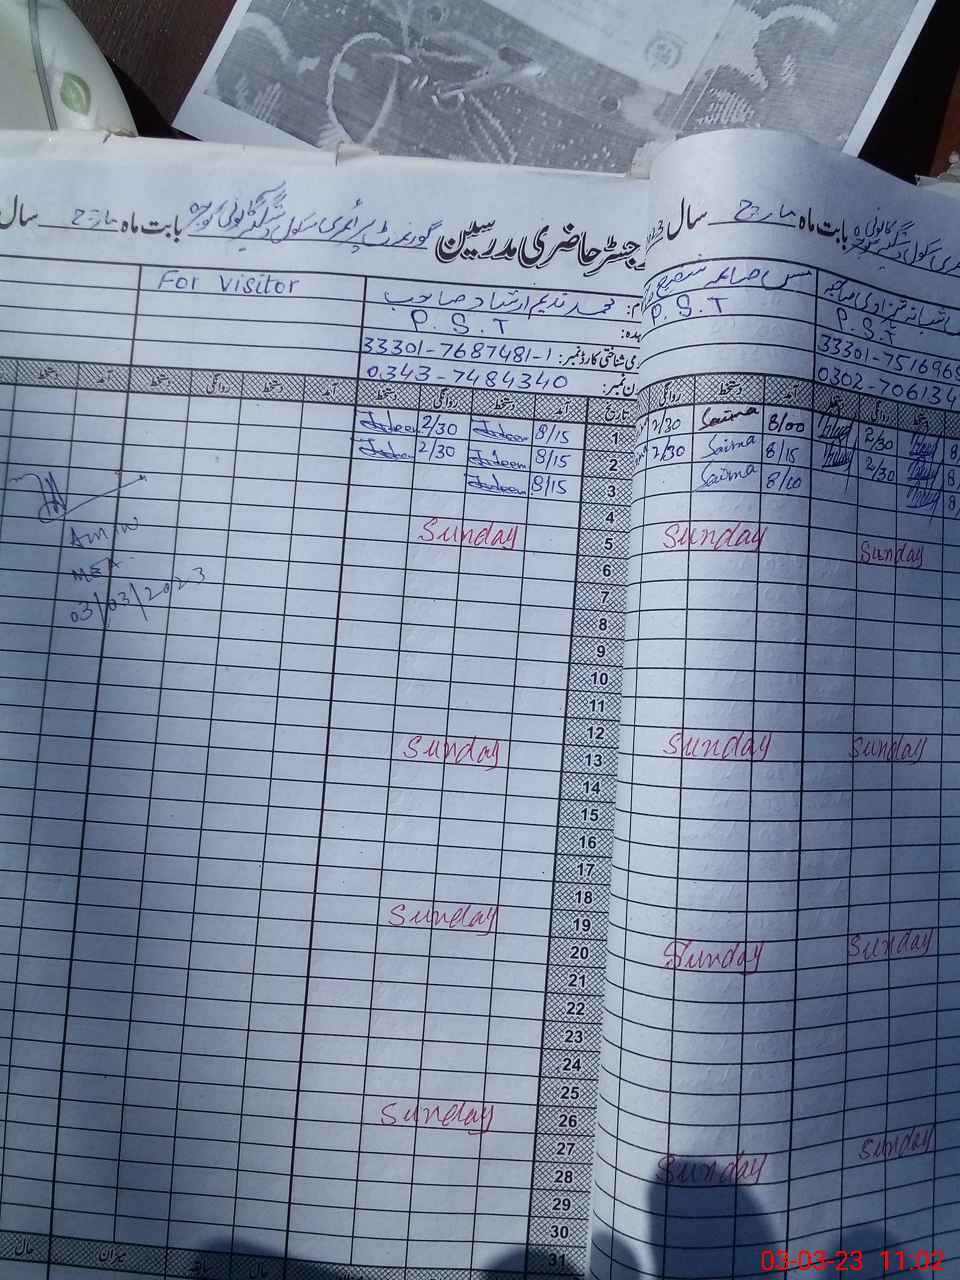 رجسٹر حاضری مدرسین
گورنمنٹ پرائمری سکول
بابت ماہ مارچ سال
For visitor
نام: محمد ندیم ارشاد صاحب
عہدہ: P.S.T
قومی شناختی کارڈ نمبر: 33301-7687481-1
فون نمبر: 0343-7484340
تاریخ آمد دستخط روانگی دستخط آمد دستخط روانگی دستخط آمد دستخط
1 8/15 2/30
2 8/15 2/30
3 8/15
4
5 Sunday
6
7
8
9
10
11
12
13 Sunday
14
15
16
17
18
19 Sunday
20
21
22
23
24
25
26 Sunday
27
28
29
30
31
میزان حال
Amin
03/03/2023
بابت ماہ مارچ سال
مس صائمہ
P.S.T
P.S.T
33301-751696
0302-706134
آمد دستخط روانگی
8/00 Saima 2/30 2/30
8/15 Saima 2/30 2/30
8/10 Saima
Sunday Sunday
Sunday Sunday
Sunday Sunday
Sunday Sunday
03-03-23 11:02